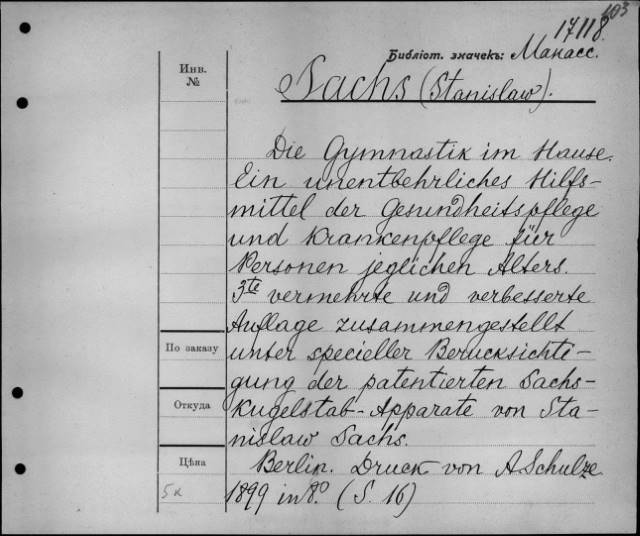 403
17118.
Библіот. значекъ: Манасс.
Инв.
№
Sachs (Stanislaw).
Die Gymnastik im Hause.
Ein unentbehrliches Hilfs-
mittel der Gesundheitspflege
und Krankenpflege für
Personen jeglichen Alters.
3te vermehrte und verbesserte
Auflage zusammengestellt
По заказу
unter specieller Berucksichti-
gung der patentierten Sachs-
Откуда
Kugelstab-Apparate von Sta-
nislaw Sachs.
Цѣна
Berlin. Druck von A. Schulze
5к
1899 in 8.° (S. 16)